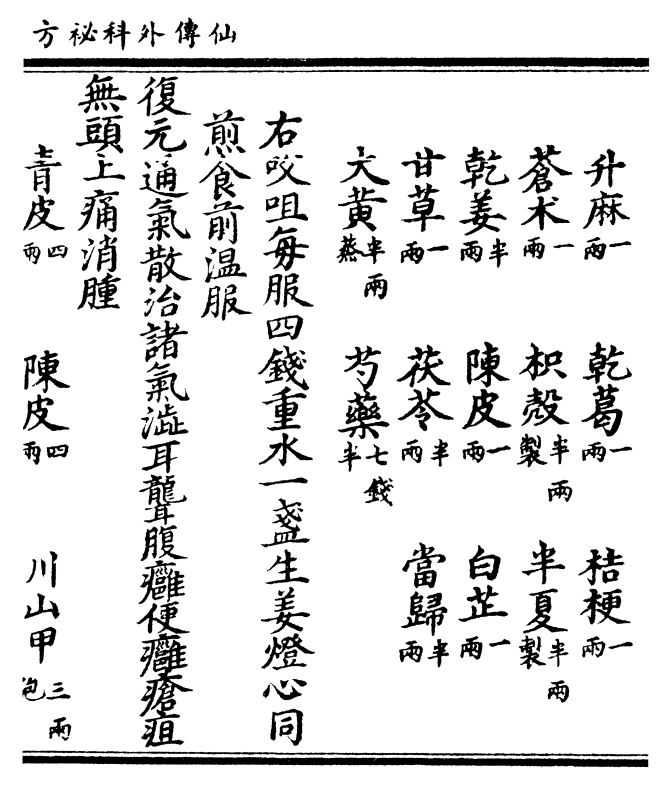 仙傳外科祕方
升麻一兩　乾葛一兩　桔梗一兩
蒼术一兩　枳殼半兩製　半夏半兩製
乾姜半兩　陳皮一兩　白芷一兩
甘草一兩　茯苓半兩　當歸半兩
大黄半兩蒸　芍藥七錢半
右㕮咀每服四錢重水一盞生姜燈心同
煎食前温服
復元通氣散治諸氣澁耳聾腹癰便癰瘡疽
無頭上痛消腫
青皮四兩　陳皮四兩　川山甲三兩炮